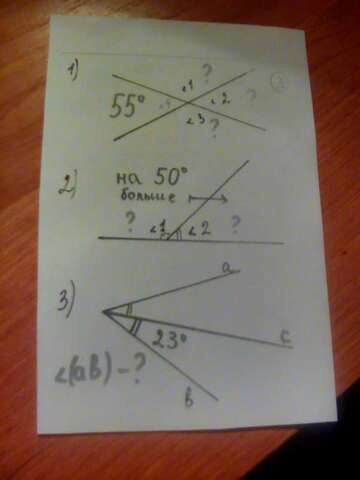 1)
?
<1
55°
<4
<2
?
<3
?
3
2)
на 50°
больше
?
<1
<2
?
3)
a
23°
c
<(ab) - ?
b